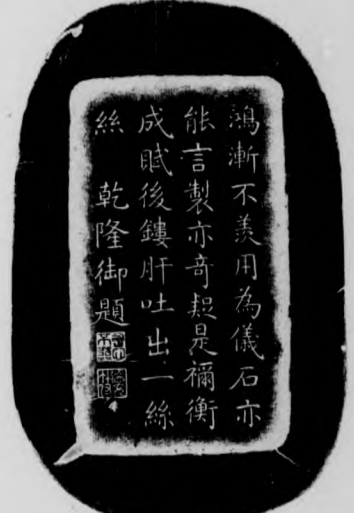 鴻漸不羨用為儀石亦
能言製亦奇疑是禰衡
成賦後鏤肝吐出一絲
絲　乾隆御題